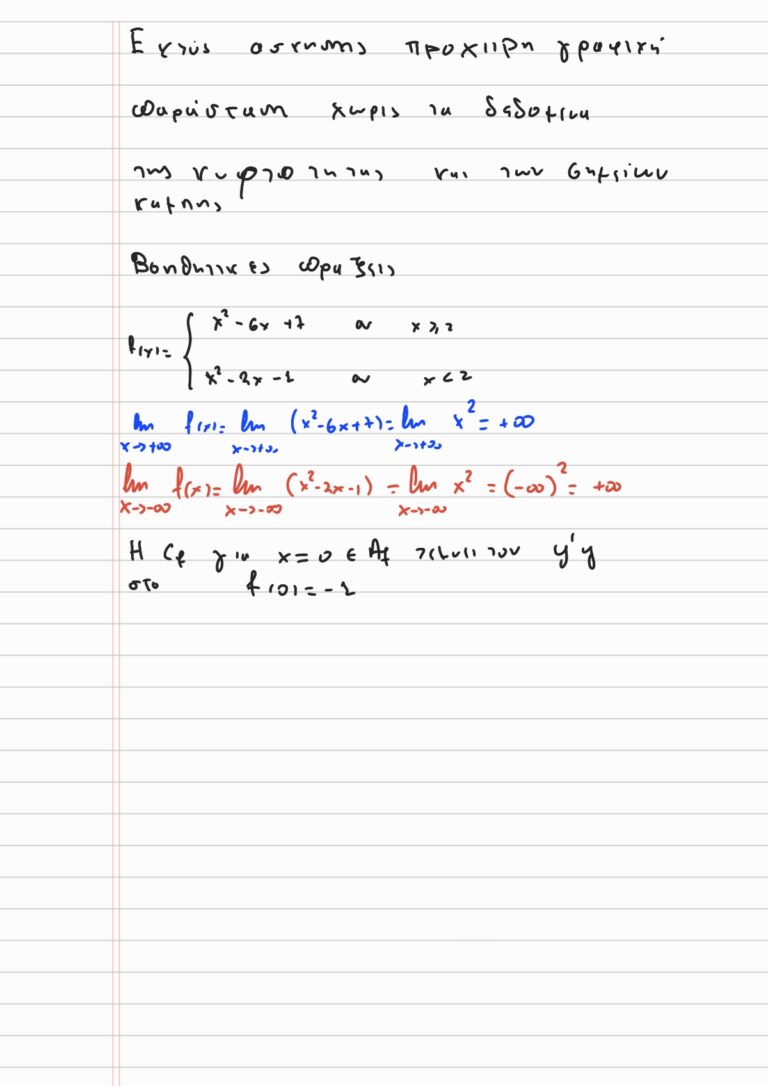 Εκτός ασκησης προχειρη γραφική
παράσταση χωρις τα δεδομενα
της κυρτοτητας και των σημείων
καμπης
Βοηθητικες πραξεις
f(x)= { x² - 6x + 7 αν x ≥ 2
x² - 2x - 1 αν x < 2
lim x→+∞ f(x) = lim x→+∞ (x²-6x+7) = lim x→+∞ x² = +∞
lim x→-∞ f(x) = lim x→-∞ (x²-2x-1) = lim x→-∞ x² = (-∞)² = +∞
Η Cf για x = 0 ∈ Af τεμνει τον y'y
στο f(0) = -1